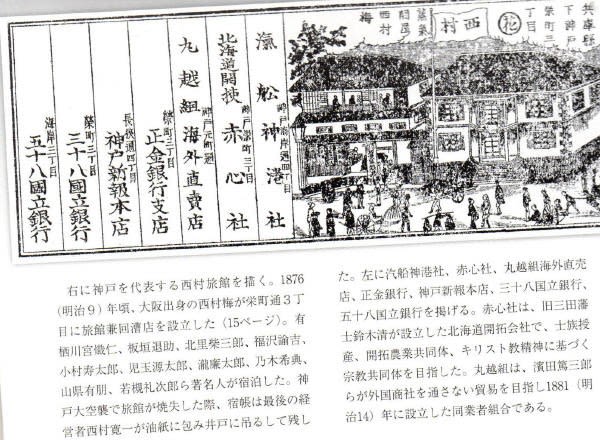 兵庫縣
下神戸
榮町三
丁目
花
西村
蒸氣
問屋
西村
神戸海岸通四丁目
滊舩神港社
北海道開拓
神戸榮町三丁目
赤心社
神戸元町通
丸越組海外直賣店
榮町三丁目
正金銀行支店
長狹通四丁目
神戸新報本店
榮町三丁目
三十八國立銀行
海岸三丁目
五十八國立銀行
右に神戸を代表する西村旅館を描く。1876
(明治9)年頃、大阪出身の西村梅が栄町通3丁
目に旅館兼回漕店を設立した(15ページ)。有
栖川宮儀仁、板垣退助、北里柴三郎、福沢諭吉、
小村寿太郎、児玉源太郎、瀧廉太郎、乃木希典、
山県有朋、若槻礼次郎ら著名人が宿泊した。神
戸大空襲で旅館が焼失した際、宿帳は最後の経
営者西村寛一が油紙に包み井戸に吊るして残し
た。左に汽船神港社、赤心社、丸越組海外直売
店、正金銀行、神戸新報本店、三十八国立銀行、
五十八国立銀行を掲げる。赤心社は、旧三田藩
士鈴木清が設立した北海道開拓会社で、士族授
産、開拓農業共同体、キリスト教精神に基づく
宗教共同体を目指した。丸越組は、濱田篤三郎
らが外国商社を通さない貿易を目指し1881(明
治14)年に設立した同業者組合である。